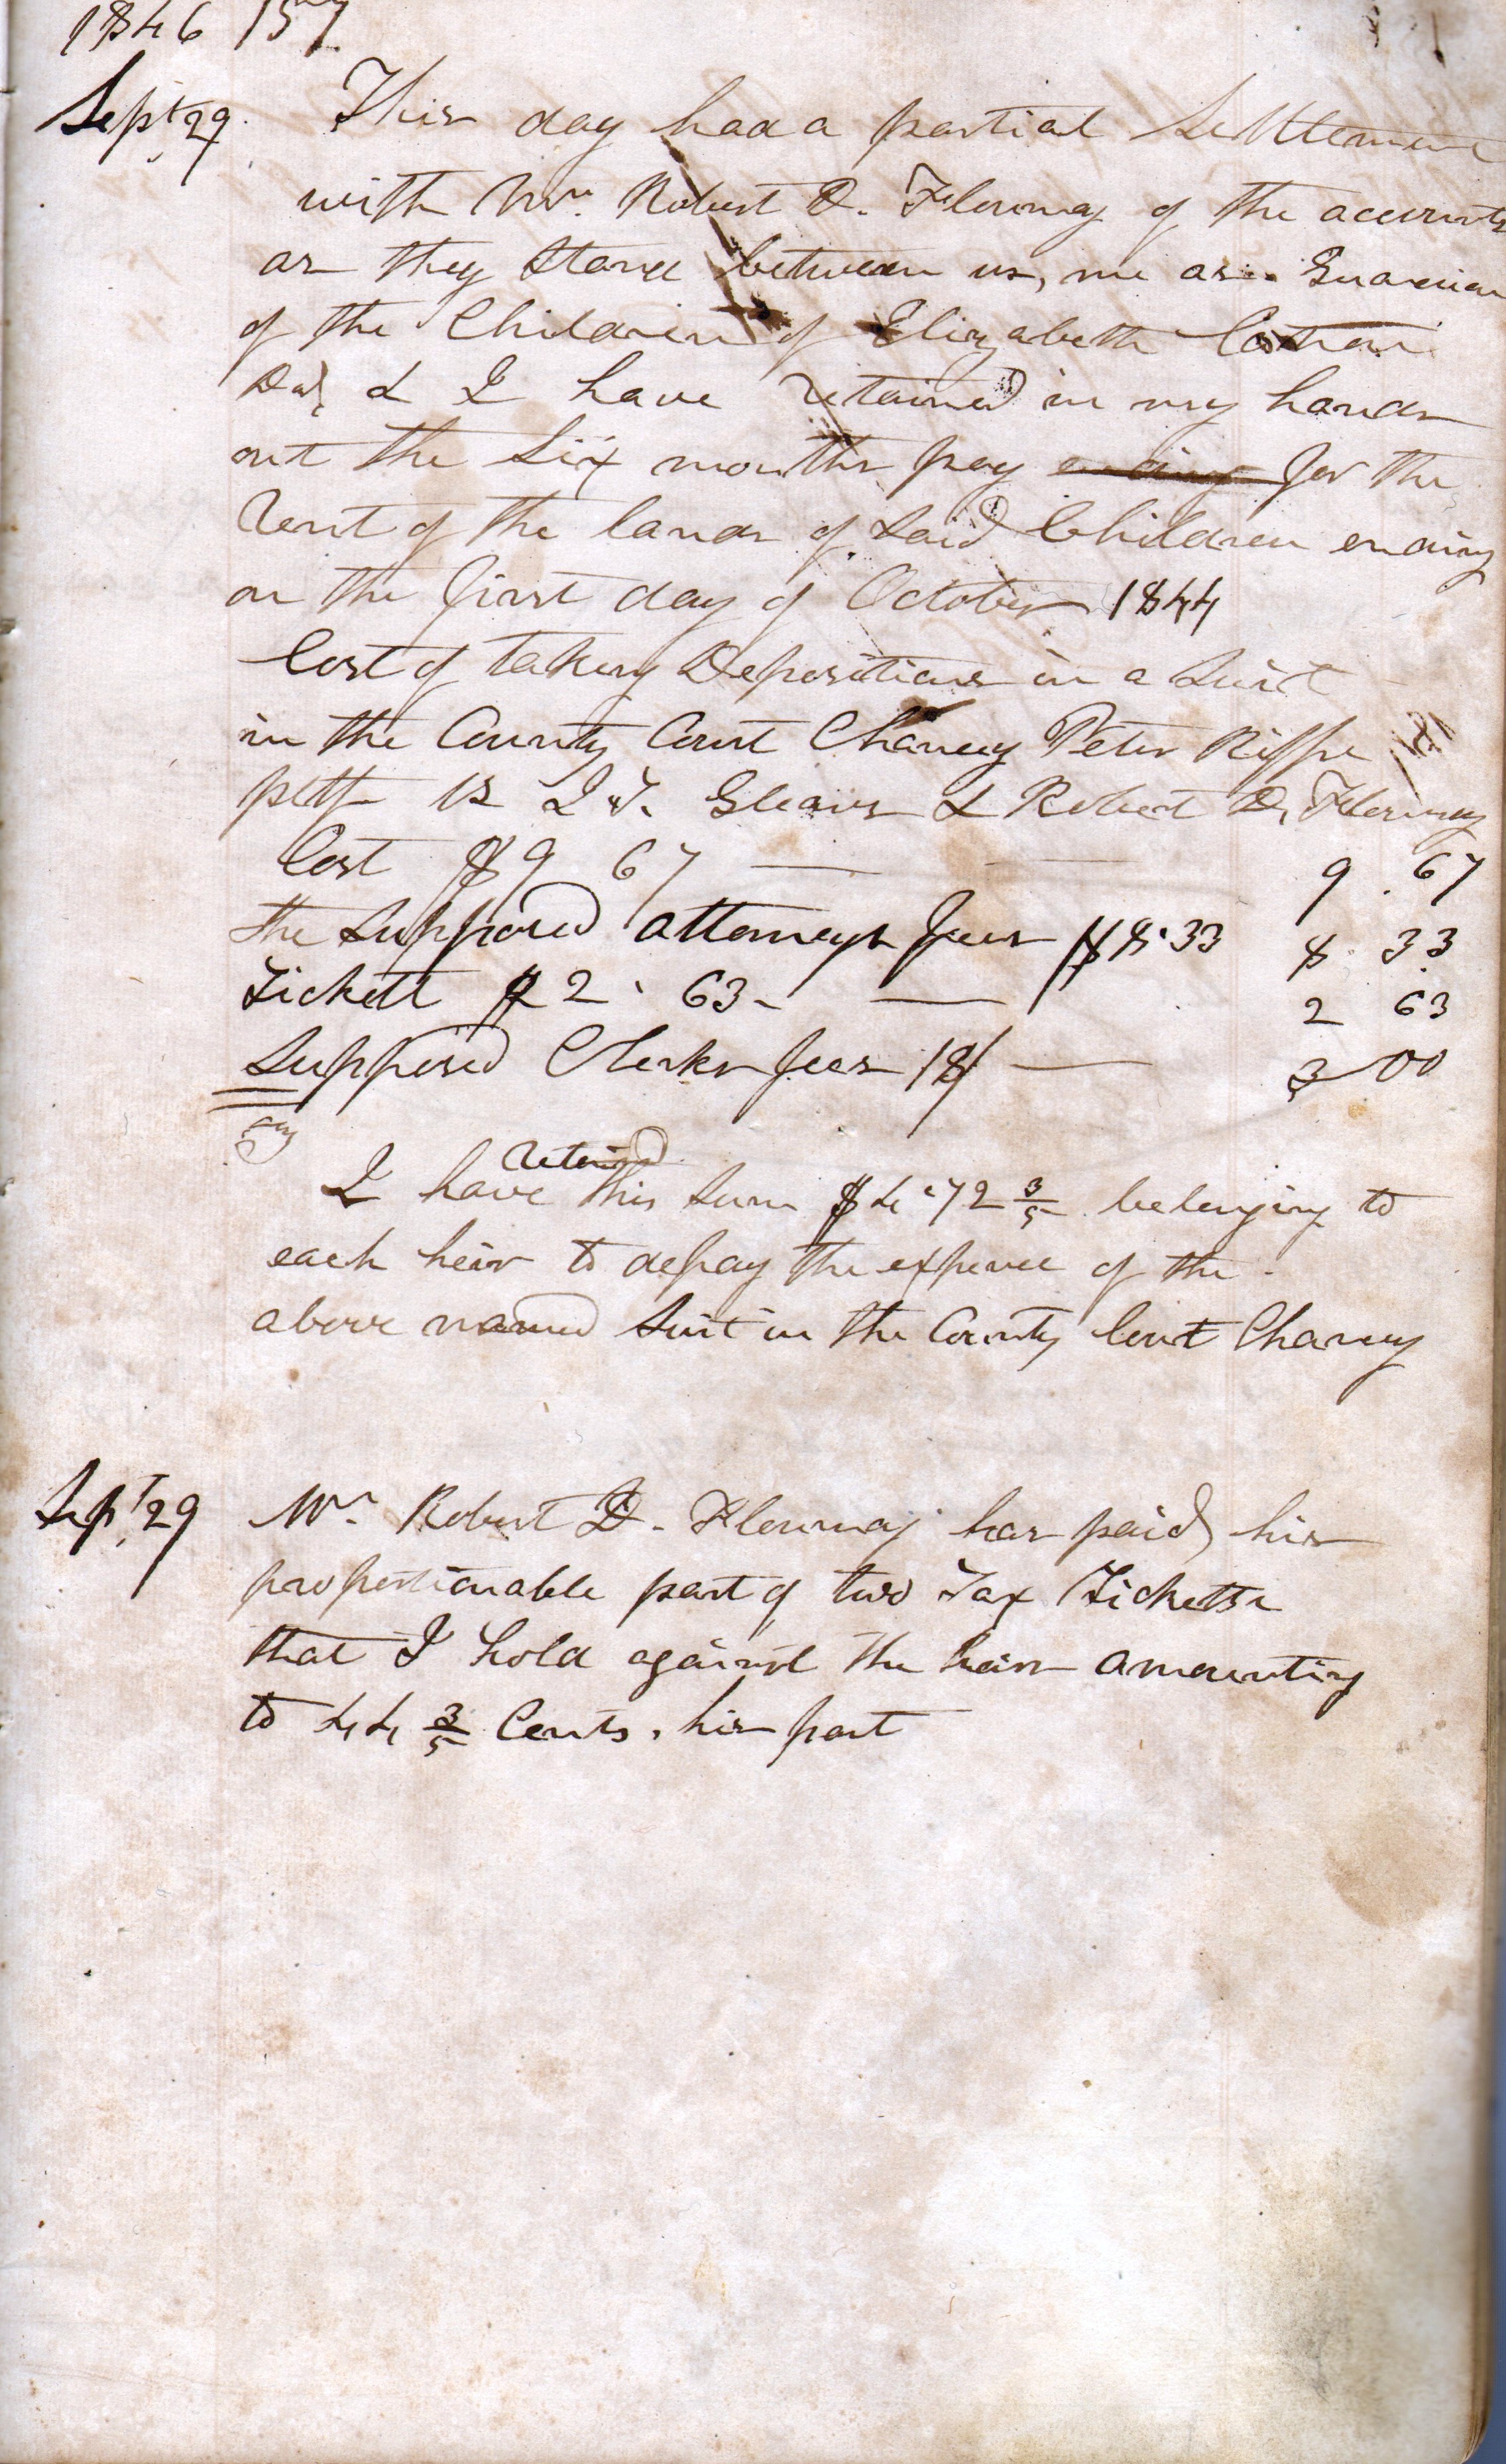 1846 157
Sept 29. This day had a partial Settlement
with Mr. Robert D. Flournoy of the accounts
as they stand between us, me as Guardian
of the Children of Elizabeth
Decd & I have retained in my hands
out the Six months pay ending for the
Rent of the lands of said Children ending
on the first day of October 1844
Cost of taking Depositions in a Suit
in the County Court Chancy Peter Riffe
pltff vs J. T. Gleaves & Robert D. Flournoy
Cost $9 67 — 9.67
the Supposed attorneys fees $8.33 8.33
Tickett $2.63 — 2 63
Supposed Clerks fees 18/ — 3 00
retained
I have this sum $4.72 3/5 belonging to
each heir to defray the expence of the
above named Suit in the County Court Chancy
Sept 29 Mr. Robert D. Flournoy has paid his
proportionable part of two Tax Ticketts
that I hold against the heirs amounting
to 44 3/5 Cents. his part